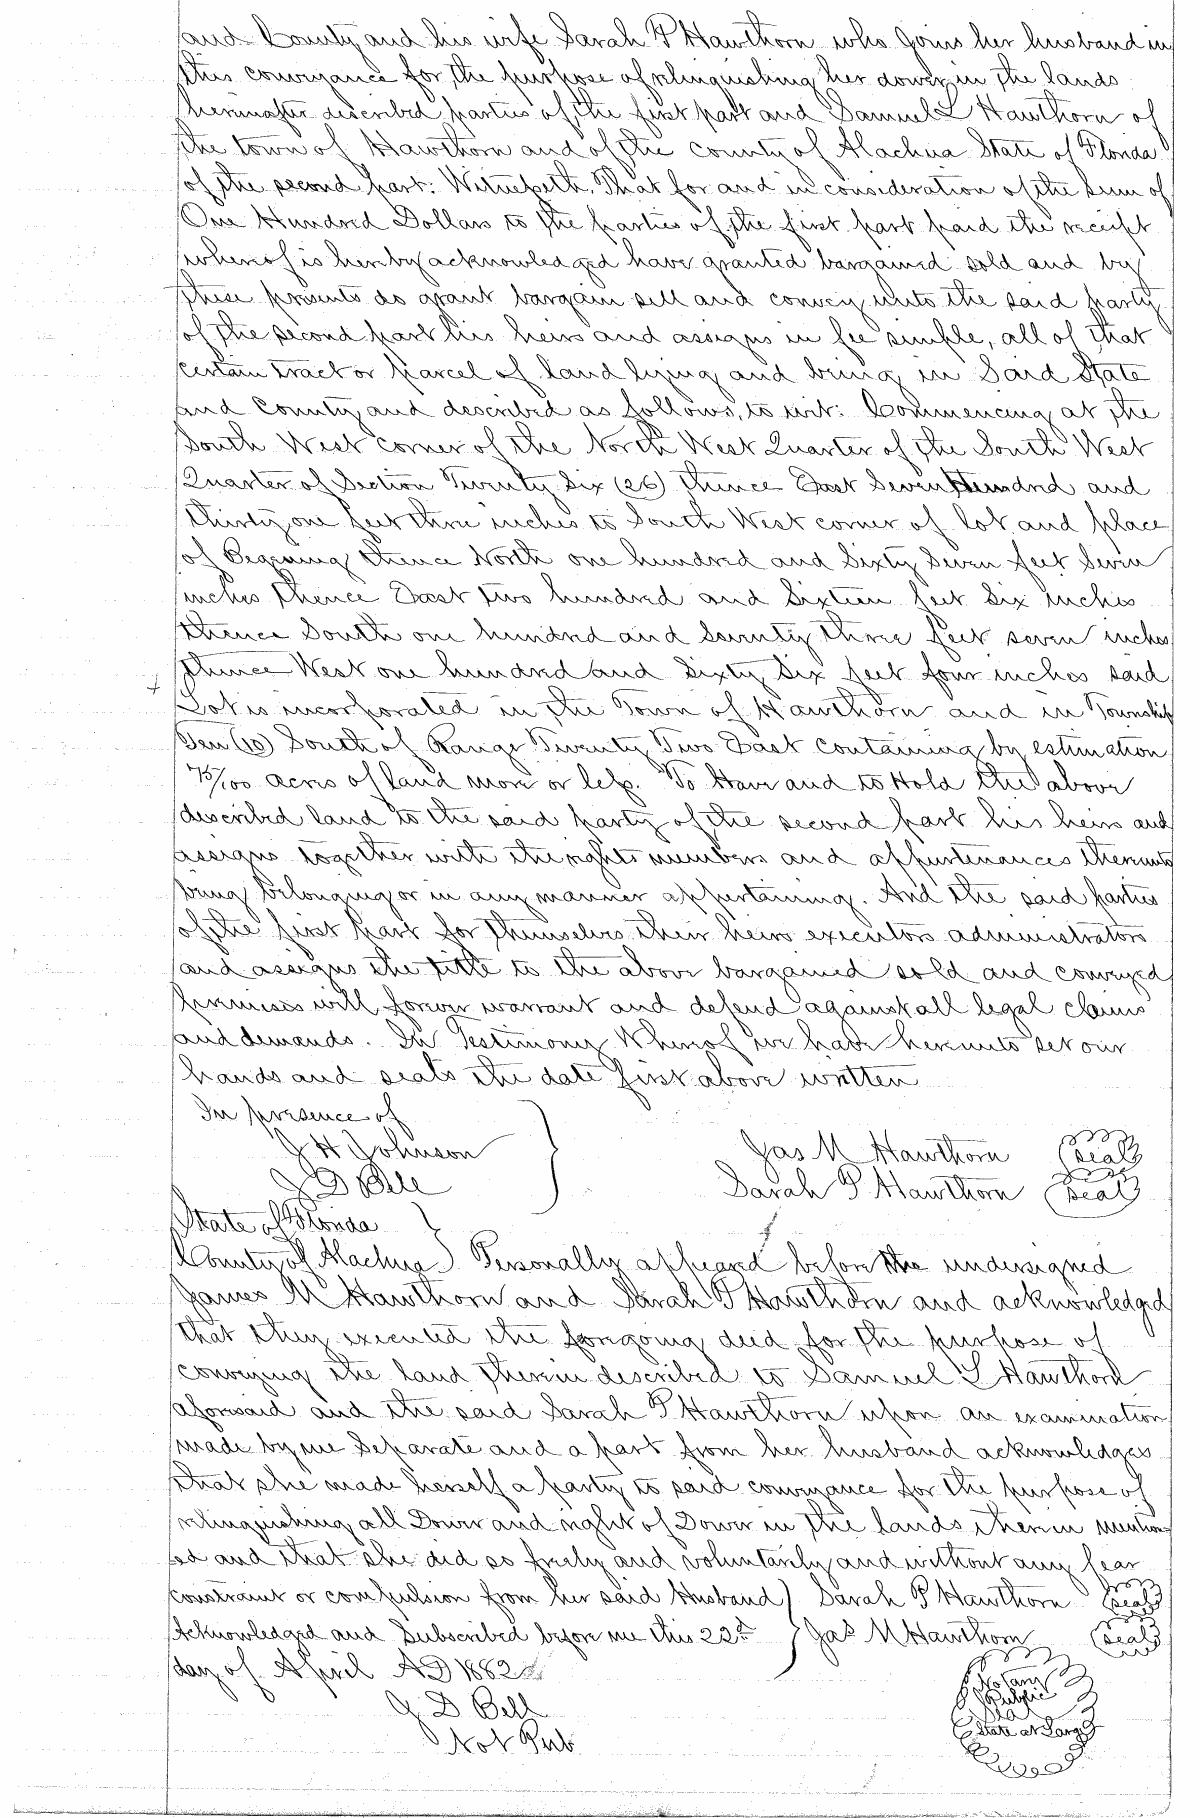 and County and his wife Sarah P Hawthorn who joins her husband in
this conveyance for the purpose of relinquishing her dower in the lands
hereinafter described parties of the first part and Samuel L Hawthorn of
the town of Hawthorn and of the county of Alachua State of Florida
of the second part: Witnesseth, That for and in consideration of the sum of
One Hundred Dollars to the parties of the first part paid the receipt
whereof is hereby acknowledged have granted bargained sold and by
these presents do grant bargain sell and convey unto the said party
of the second part his heirs and assigns in fee simple, all of that
certain tract or parcel of land lying and being in Said State
and County and described as follows, to wit: Commencing at the
South West corner of the North West Quarter of the South West
Quarter of Section Twenty Six (26) thence East Seven Hundred and
thirty one feet three inches to South West corner of lot and place
of Begining thence North one hundred and Sixty Seven feet Seven
inches thence East two hundred and Sixteen feet Six inches
thence South one hundred and Seventy three feet seven inches
thence West one hundred and Sixty Six feet four inches said
Lot is incorporated in the Town of Hawthorn and in Township
Ten (10) South of Range Twenty Two East containing by estimation
75/100 acres of land more or less. To Have and to Hold the above
described land to the said party of the second part his heirs and
assigns together with the rights members and appurtenances thereunto
being belonging or in any manner appertaining. And the said parties
of the first part for themselves their heirs executors administrators
and assigns the title to the above bargained sold and conveyed
premises will forever warrant and defend against all legal claims
and demands. In Testimony Whereof we have hereunto set our
hands and seals the date first above written
In presence of
J H Johnson Jas M Hawthorn (seal)
J D Bell Sarah P Hawthorn (seal)
State of Florida
County of Alachua } Personally appeared before the undersigned
James M Hawthorn and Sarah P Hawthorn and acknowledged
that they executed the foregoing deed for the purpose of
conveying the land therein described to Samuel L Hawthorn
aforesaid and the said Sarah P Hawthorn upon an examination
made by me Separate and a part from her husband acknowledges
that she made herself a party to said conveyance for the purpose of
relinquishing all Dower and right of Dower in the lands therein mention
ed and that she did so freely and voluntarily and without any fear
constraint or compulsion from her said Husband } Sarah P Hawthorn (seal)
Acknowledged and Subscribed before me this 22d } Jas M Hawthorn (seal)
day of April AD 1882
J D Bell
Not Pub
Notary
Public
State at Large